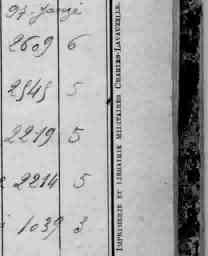 2609 6
2545 5
2219 5
2214 5
1039 3
IMPRIMERIE ET LIBRAIRIE MILITAIRES CHARLES-LAVAUZELLE.